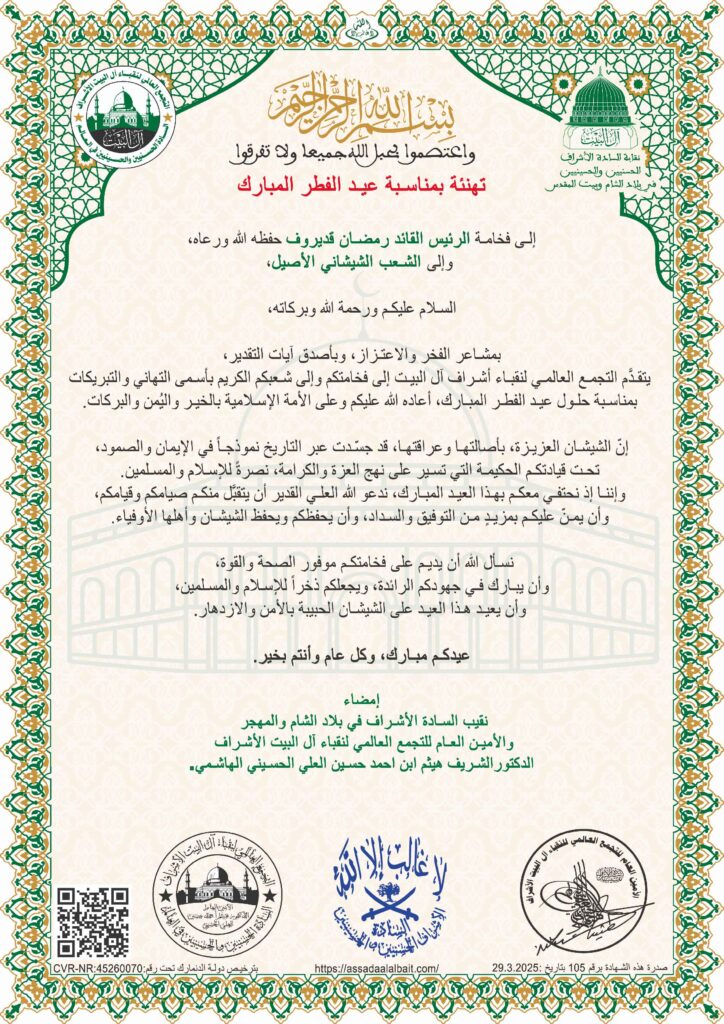 بسم الله الرحمن الرحيم
واعتصموا بحبل الله جميعا ولا تفرقوا
تهنئة بمناسبة عيد الفطر المبارك
التجمع العالمي لنقباء آل البيت الأشراف
آل البيت
السادة الحسنيين والحسينيين في العالم
آل البيت
نقابة السادة الأشراف
الحسنيين والحسينيين
في بلاد الشام وبيت المقدس
إلى فخامة الرئيس القائد رمضان قديروف حفظه الله ورعاه،
وإلى الشعب الشيشاني الأصيل،
السلام عليكم ورحمة الله وبركاته،
بمشاعر الفخر والاعتزاز، وبأصدق آيات التقدير،
يتقدَّم التجمع العالمي لنقباء أشراف آل البيت إلى فخامتكم وإلى شعبكم الكريم بأسمى التهاني والتبريكات
بمناسبة حلول عيد الفطر المبارك، أعاده الله عليكم وعلى الأمة الإسلامية بالخير واليُمن والبركات.
إنّ الشيشان العزيزة، بأصالتها وعراقتها، قد جسّدت عبر التاريخ نموذجاً في الإيمان والصمود،
تحت قيادتكم الحكيمة التي تسير على نهج العزة والكرامة، نصرةً للإسلام والمسلمين.
وإننا إذ نحتفي معكم بهذا العيد المبارك، ندعو الله العلي القدير أن يتقبَّل منكم صيامكم وقيامكم،
وأن يمنّ عليكم بمزيدٍ من التوفيق والسداد، وأن يحفظكم ويحفظ الشيشان وأهلها الأوفياء.
نسأل الله أن يديم على فخامتكم موفور الصحة والقوة،
وأن يبارك في جهودكم الرائدة، ويجعلكم ذخراً للإسلام والمسلمين،
وأن يعيد هذا العيد على الشيشان الحبيبة بالأمن والازدهار.
عيدكم مبارك، وكل عام وأنتم بخير.
إمضاء
نقيب السادة الأشراف في بلاد الشام والمهجر
والأمين العام للتجمع العالمي لنقباء آل البيت الأشراف
الدكتورالشريف هيثم ابن احمد حسين العلي الحسيني الهاشمي.
الأمين العام للتجمع العالمي للنقباء آل البيت الأشراف
لا غالب إلا الله
السادة
الأشراف الحسنيين والحسينيين
التجمع العالمي لنقباء آل البيت الأشراف
الأمين العام
السادة الحسنيين والحسينيين في العالم
صدرة هذه الشهادة برقم 105 بتاريخ :29.3.2025
https://assadaalalbait.com/
بترخيص دولة الدنمارك تحت رقم:CVR-NR:45260070